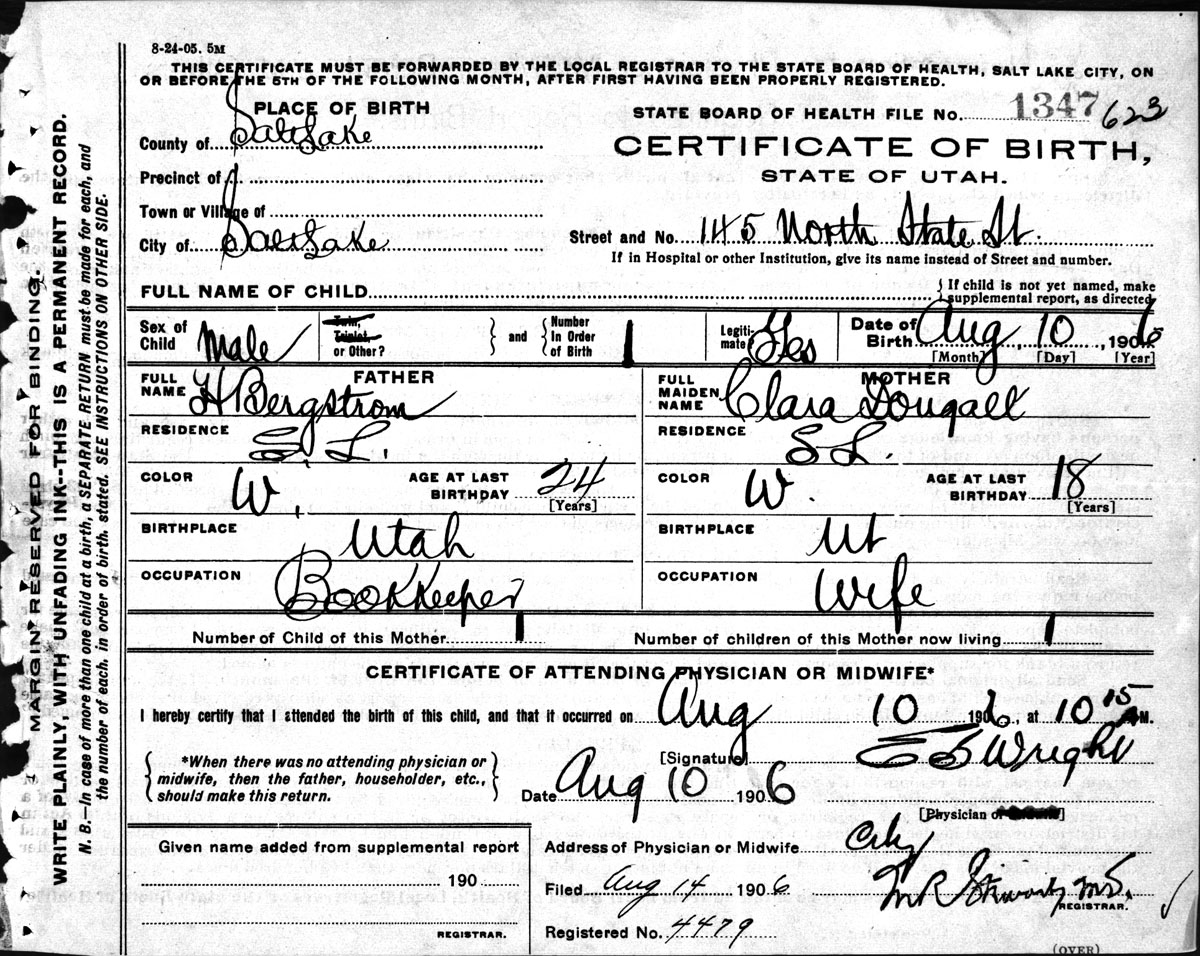 8-24-05. 5M
THIS CERTIFICATE MUST BE FORWARDED BY THE LOCAL REGISTRAR TO THE STATE BOARD OF HEALTH, SALT LAKE CITY, ON
OR BEFORE THE 5TH OF THE FOLLOWING MONTH, AFTER FIRST HAVING BEEN PROPERLY REGISTERED.
MARGIN RESERVED FOR BINDING.
WRITE PLAINLY, WITH UNFADING INK--THIS IS A PERMANENT RECORD.
N. B.—In case of more than one child at a birth, a SEPARATE RETURN must be made for each, and
the number of each, in order of birth, stated. SEE INSTRUCTIONS ON OTHER SIDE.
PLACE OF BIRTH
County of Salt Lake
Precinct of
Town or Village of
City of Salt Lake
STATE BOARD OF HEALTH FILE No. 1347 623
CERTIFICATE OF BIRTH,
STATE OF UTAH.
Street and No. 145 North State St.
If in Hospital or other Institution, give its name instead of Street and number.
FULL NAME OF CHILD
If child is not yet named, make
supplemental report, as directed
Sex of Child Male
Twin, Triplet, or Other?
and
Number In Order of Birth 1
Legiti-mate? Yes
Date of Birth Aug 10, 1906
[Month] [Day] [Year]
FATHER
FULL NAME H Bergstrom
RESIDENCE S. L.
COLOR W. AGE AT LAST BIRTHDAY 24
[Years]
BIRTHPLACE Utah
OCCUPATION Bookkeeper
MOTHER
FULL MAIDEN NAME Clara Dougall
RESIDENCE S L.
COLOR W. AGE AT LAST BIRTHDAY 18
[Years]
BIRTHPLACE Ut
OCCUPATION Wife
Number of Child of this Mother 1 Number of children of this Mother now living 1
CERTIFICATE OF ATTENDING PHYSICIAN OR MIDWIFE*
I hereby certify that I attended the birth of this child, and that it occurred on Aug 10 1906, at 10 15 A M.
*When there was no attending physician or
midwife, then the father, householder, etc.,
should make this return.
[Signature] Wright
Date Aug 10 1906
[Physician or Midwife]
Given name added from supplemental report
190
REGISTRAR.
Address of Physician or Midwife City
Filed Aug 14 1906 M.D.
REGISTRAR.
Registered No. 4479
(OVER)